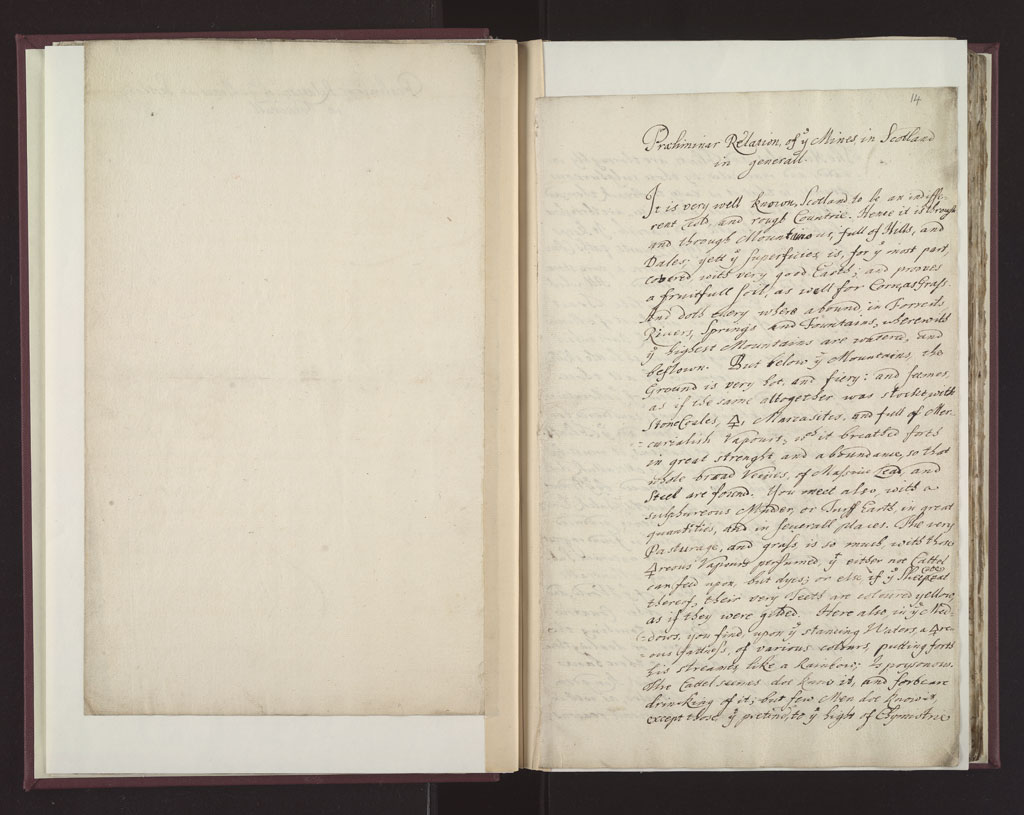 14
Præliminar Relation, of yͤ Mines, in Scotland
in generall.
It is very well known, Scotland to be an indiffe-
rent Cold, and rough Countrie. Hence it is through
and through Mountainous, full of Hills, and
Dales; yett yͤ superficies is, for yͤ most part,
covered with very good Earth; and prooves
a fruitfull soil, as well for Corn, as Grass.
And doth every where abound, in Torrents,
Rivers, Springs and Fountains, wherewith
yͤ highest Mountains are watered, and
beflown. But below yͤ Mountains, the
Ground is very hot, and fiery: and seemes,
as if the same altogether was stockt, with
Stone Coales, 🜍, Marcasites, and full of Mer-
=curialish Vapours, wᶜʰ it breathed forth
in great strenght and aboundance, so that
whole broad Veines, of Massive Lead, and
Steel are found. You meet also, with a
sulphureous Mudder, or Turff Earth, in great
quantities, and in severall places. The very
Pasturage, and grass, is so much, with those
🜍reous Vapours perfumed, yͭ either noe Cattel
can feed upon, but dyes; or else, if yͤ Sheep eat
thereof, their very Teeth are coloured yellow,
as if they were gilded. Here also, in yͤ Med-
=dows, you find, upon yͤ standing Waters, a 🜍re-
ous fattness, of various colours, putting forth
his streames, like a Rainbow; is poysonous.
The Cattel seems doe know it, and forbeare
drinking of it; but few Men doe know it,
except those, yͭ pretend, to yͤ light of Chymistrie